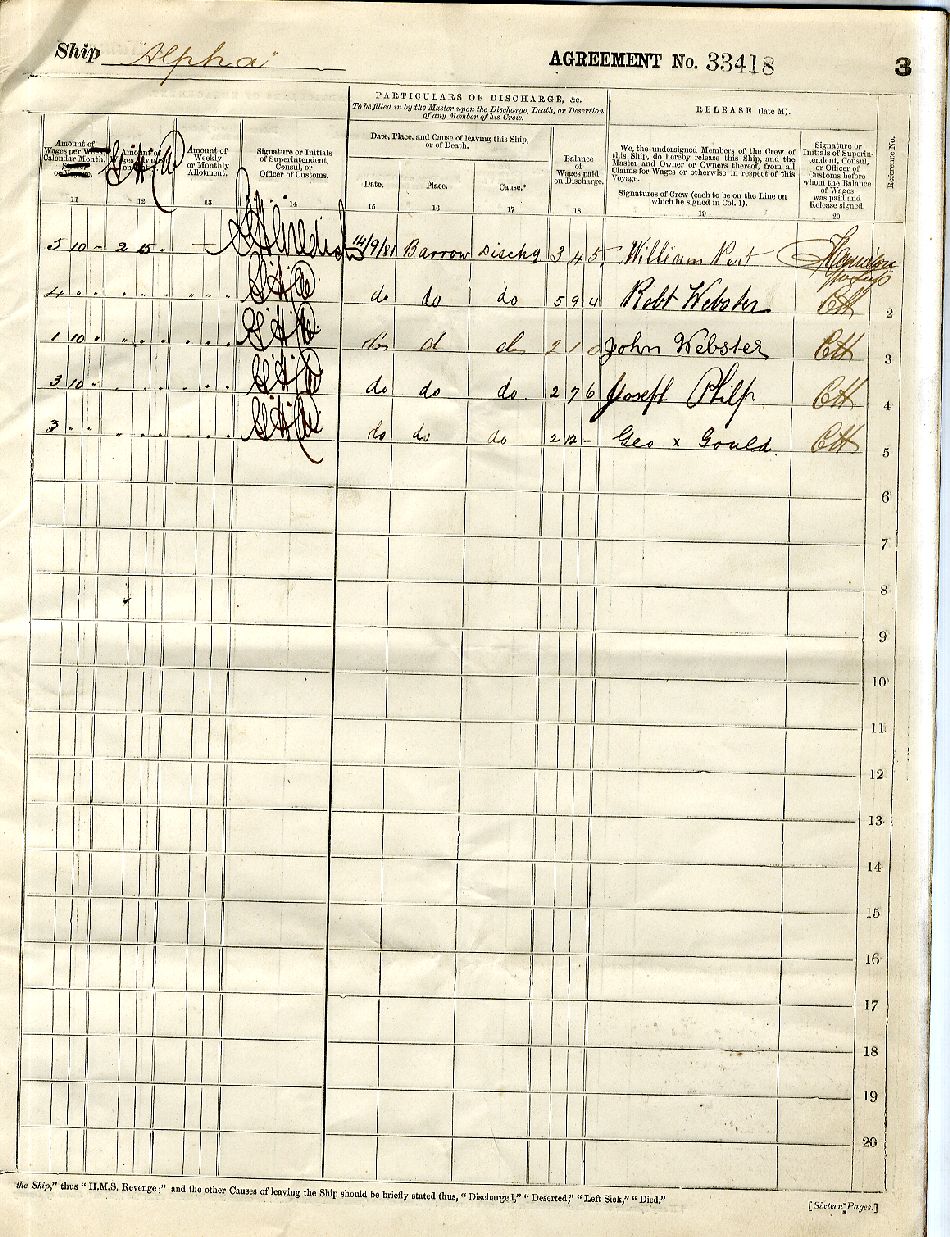 Ship Alpha AGREEMENT No. 33418 3
PARTICULARS OF DISCHARGE, &c.
To be filled in by the Master upon the Discharge, Death, or Desertion
of any Member of his Crew.
RELEASE (late M).
Date, Place, and Cause of leaving this Ship,
or of Death.
Amount of
Wages per
Calendar Month,
11
Amount of
12
Amount of
Weekly
or Monthly
Allotment.
13
Signature or Initials
of Superintendent,
Consul, or
Officer of Customs.
14
Date.
15
Place.
16
Cause.*
17
Balance
of
Wages paid
on Discharge.
18
We, the undersigned Members of the Crew of
this Ship, do hereby release this Ship, and the
Master and Owner or Owners thereof, from all
Claims for Wages or otherwise in respect of this
Voyage.
Signatures of Crew (each to be on the Line on
which he signed in Col. 1).
19
Signature or
Initials of Superin-
tendent, Consul,
or Officer of
Customs before
whom the Balance
of Wages
was paid and
Release signed.
20
Reference No.
5 10 - 2 5 - 14/9/81 Barrow Dischg 3 4 5 William
4 " " do do do 5 9 4 Robt Webster 2
1 10 " do d do 2 1 0 John Webster 3
3 10 " do do do 2 7 6 Joseph Philp 4
3 " " do do do 2 12 - Geo x Gould 5
6
7
8
9
10
11
12
13
14
15
16
17
18
19
20
the Ship," thus "H.M.S. Revenge;" and the other Causes of leaving the Ship should be briefly stated thus, "Discharged," "Deserted," "Left Sick," "Died."
[Sixteen Pages.]